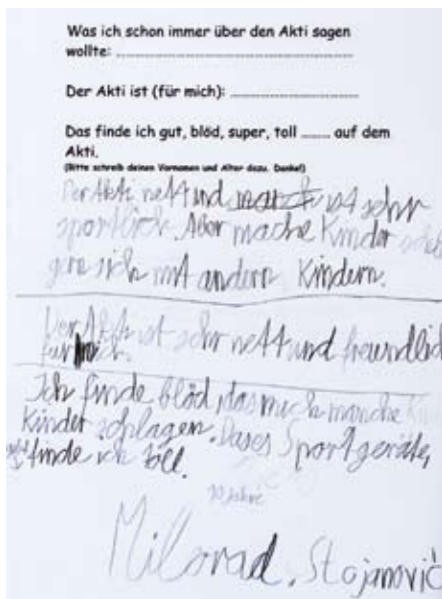 Was ich schon immer über den Akti sagen
wollte: ..............................................
Der Akti ist (für mich): ..............................
Das finde ich gut, blöd, super, toll ....... auf dem
Akti.
(Bitte schreib deinen Vornamen und Alter dazu. Danke!)
Der Akti nett und ist sehr
sportlich. Aber mache Kinder
gern sich mit andern Kindern.
Der Akti ist sehr nett und freundlich
für mich.
Ich finde blöd das mich manche
Kinder schlagen. Dases Sportgeräte,
finde ich toll.
10 Jahre
Milorad. Stojanović